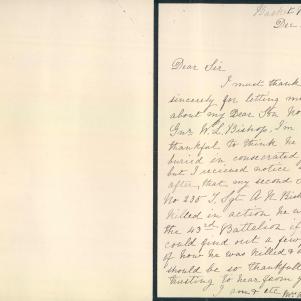 Dec
Dear Sir
I must thank
sincerely for letting m
about my Dear Son No
Gnr W. L. Bishop, I'm
thankful to think he
buried in consecrated
but I received notice
after, that my second
No 235 L/Sgt A. H. Bish
killed in action he
the 43rd Battalion if
could find out a few
of how he was killed &
should be so thankful
trusting to hear from y
I am & etc Mrs